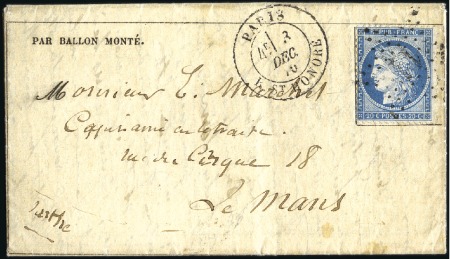 PAR BALLON MONTÉ.
PARIS
3
DEC.
70
ST HONORE
REPUB. FRANC.
20 C POSTES 20 C
Monsieur E.
Capitaine en retraite
rue du Cirque 18
Le Mans
Sarthe